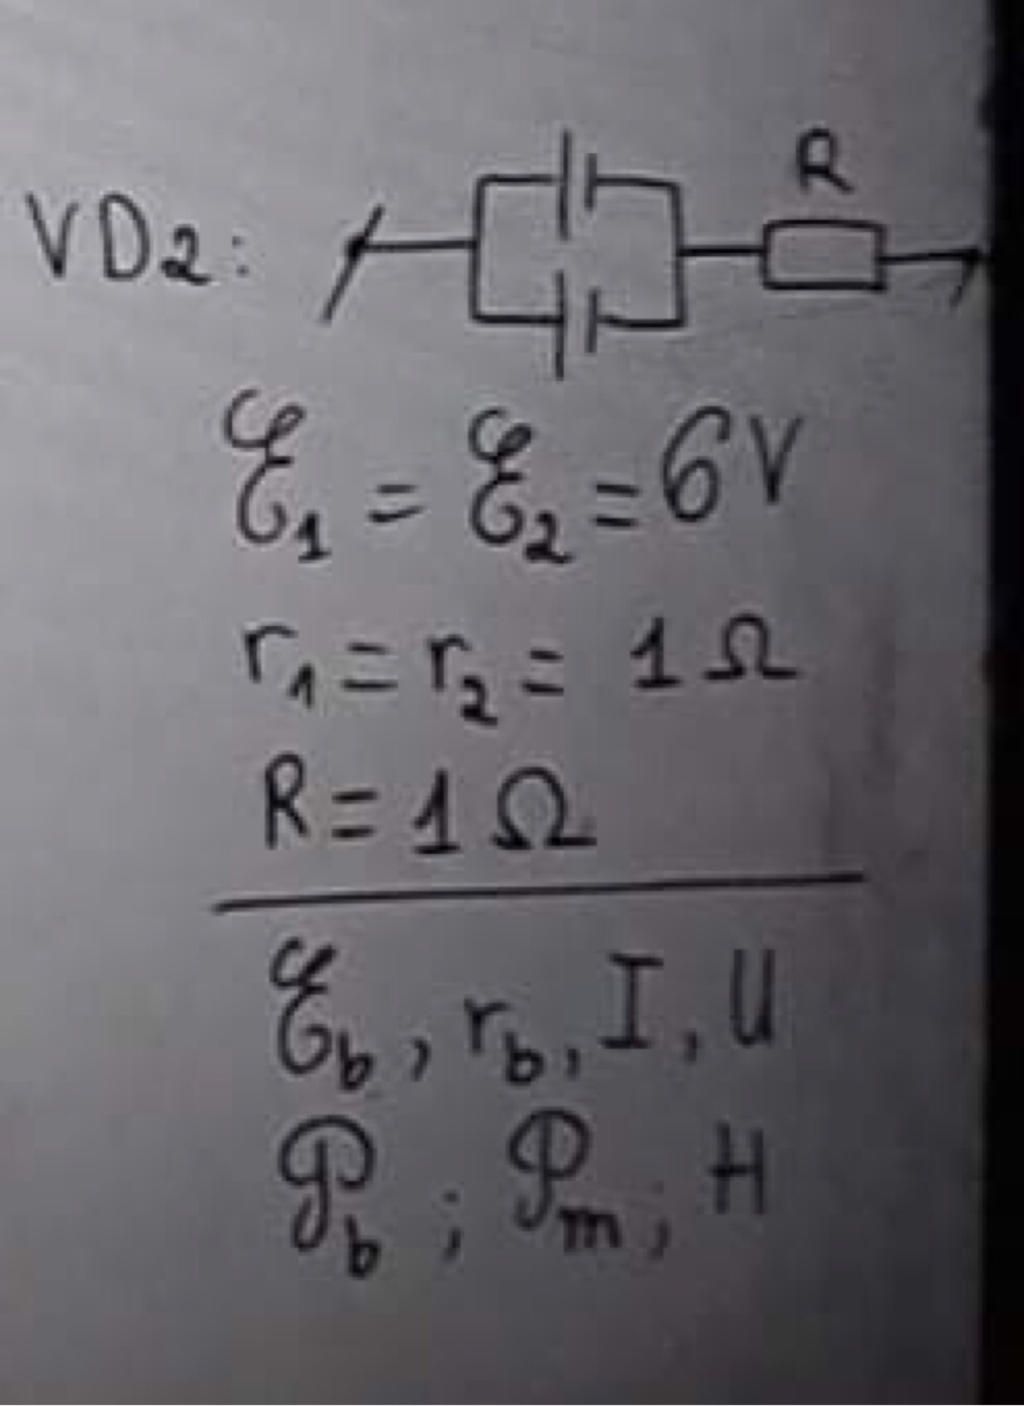 R
VD2:
ℰ₁ = ℰ₂ = 6V
r₁ = r₂ = 1Ω
R = 1Ω
ℰb, rb, I, U
𝒫b; 𝒫m; H